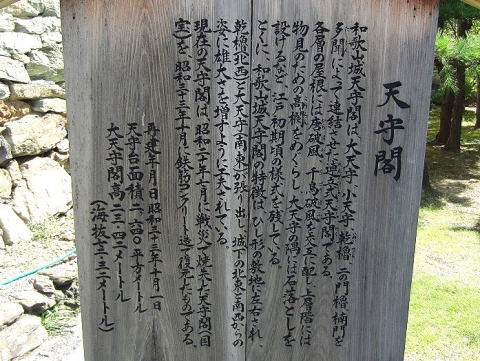 天守閣
和歌山城天守閣は、大天守、小天守、乾櫓、二の門櫓、楠門を
多聞によって連結させた連立式天守閣である。
各層の屋根には唐破風、千鳥破風を交互に配し、上層階には
物見のための高欄をめぐらし、大天守の隅には石落としを
設けるなど江戸初期頃の様式を残している。
とくに、和歌山城天守閣の特徴は、ひし形の敷地に左右され、
乾櫓(北西)と大天守(南東)が張り出し、城の北東と南西からの
姿に雄大さを増すように工夫されている。
現在の天守閣は、昭和二十年七月に戦災で焼失した天守閣(国
宝)を、昭和三十三年十月に鉄筋コンクリート造で復元したものである。
再建年月日 昭和三十三年十月一日
天守台面積 二、六四〇平方メートル
大天守閣高 二三・四二メートル
(海抜 七三・三一メートル)